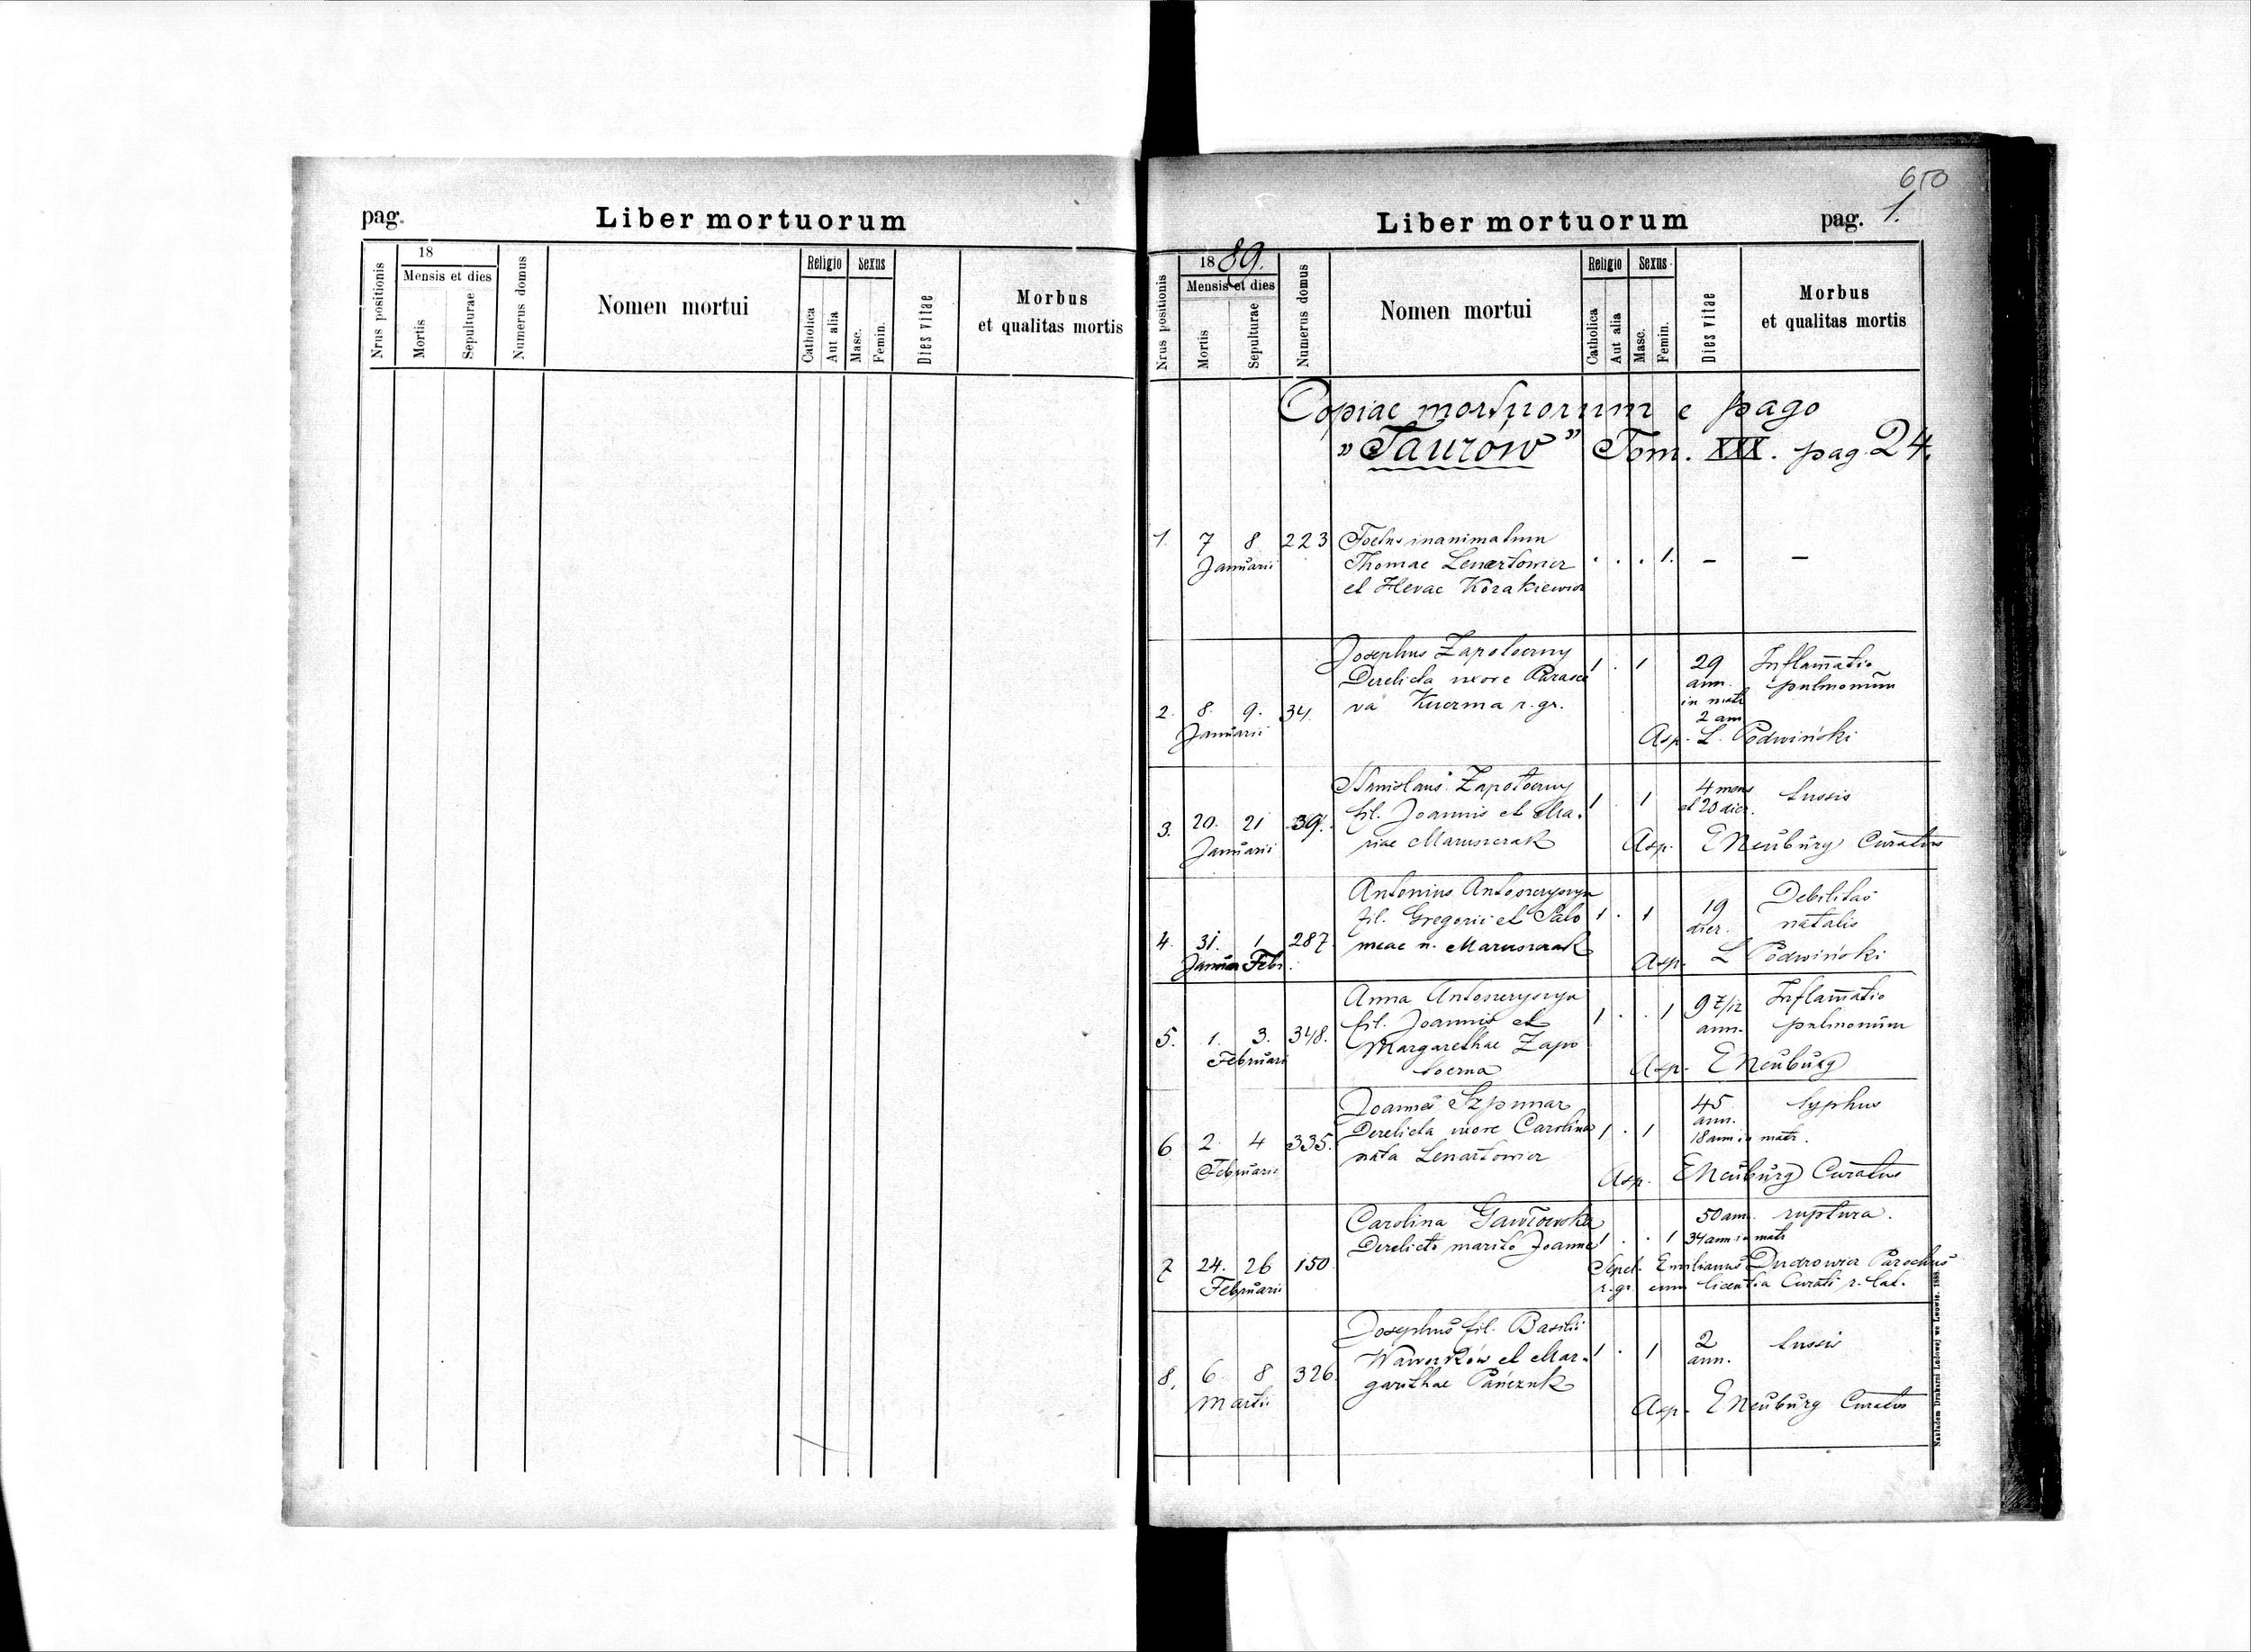 pag.
Liber mortuorum
Nrus positionis
18
Mensis et dies
Mortis
Sepulturae
Numerus domus
Nomen mortui
Religio
Catholica
Aut alia
Sexus
Masc.
Femin.
Dies vitae
Morbus
et qualitas mortis
650
Liber mortuorum
pag. 1.
Nrus positionis
1889.
Mensis et dies
Mortis
Sepulturae
Numerus domus
Nomen mortui
Religio
Catholica
Aut alia
Sexus
Masc.
Femin.
Dies vitae
Morbus
et qualitas mortis
Copiae mortuorum e pago
„Taurów” Tom. XXX. pag. 24.
1. 7 8 223 Foetus inanimatum
Januarii Thomae Lenartowicz . . . 1. — —
et Hevae Korakiewicz
Josephus Zapotoczny 1 . 1 29 Inflamatio
Derelicta uxore Parasce ann. pulmonum
2. 8. 9. 34. va Kuczma r. gr. in matr
Januarii 2 ann
Asp. L. Podwiński
Stanislaus Zapotoczny 4 mens
fil. Joannis et Ma- 1 . 1 et 20 dier. tussis
3. 20. 21 39. riae Maruszczak
Januarii Asp. E Neuburg Curatus
Antonius Antoszczyszyn Debilitas
fil. Gregorii et Salo 1 . 1 19 natalis
4. 31. 1 287. meae n. Maruszczak dier.
Januar Febr. Asp. L Podwiński
Anna Antoszczyszyn 9 7/12 Inflamatio
fil. Joannis et 1 . . 1 ann. pulmonum
5. 1. 3. 348. Margarethae Zapo
Februarii toczna Asp. E Neuburg
Joannes Szpunar 45 typhus
Derelicta uxore Carolina 1 . 1 ann.
6 2. 4 335. nata Lenartowicz 18 ann in matr.
Februarii Asp. E Neuburg Curatus
Carolina Gawłowska 50 ann. ruptura.
Derelicto marito Joanne 1 . . 1 34 ann in matr
7 24. 26 150 Sepel. Emilianus Parochus
Februarii r. gr. cum licentia Curati r. lat.
Josephus fil. Basilii
Waworków et Mar- 1 . 1 2 tussis
8. 6. 8 326. garithae Pańczuk ann.
Martii Asp. E Neuburg Curatus
Nakładem Drukarni Ludowej we Lwowie. 1888.